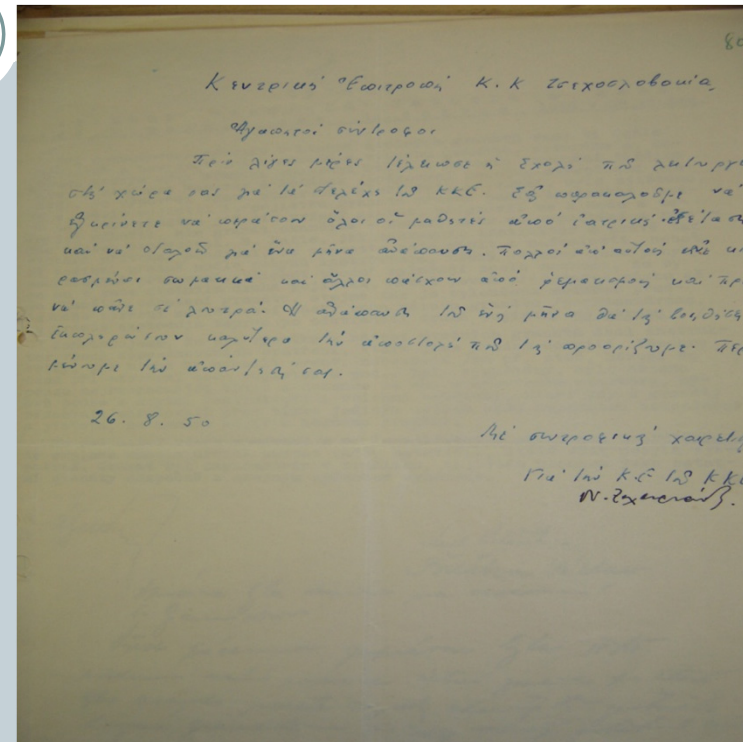 80
Κεντρική Ἐπιτροπή Κ. Κ Τσεχοσλοβακία,
Ἀγαπητοί σύντροφοι
Πρίν λίγες μέρες τέλειωσε ἡ σχολή πού λειτουργε
στή χώρα σας γιά τά στελέχη τοῦ ΚΚΕ. Σᾶς παρακαλοῦμε νά
ἐγκρίνετε νά περάσουν ὅλοι οἱ μαθητές ἀπό ἰατρική ἐξέταση
καί νά σταλοῦν γιά ἕνα μήνα ἀνάπαυση. Πολλοί ἀπ' αὐτούς εἶναι κου
ρασμένοι σωματικά καί ἄλλοι πάσχουν ἀπό ρεματισμούς καί πρέ
νά πᾶνε σέ λουτρά. Ἡ ἀνάπαυση τοῦ ἑνός μήνα θά τούς βοηθήσει
ἐκπληρώσουν καλύτερα τήν ἀποστολή πού τούς προορίζουμε. Περ
μένουμε τήν ἀπάντησή σας.
26. 8. 50
Μέ συντροφικούς χαιρετισ
Γιά τήν Κ.Ε τοῦ ΚΚΕ
Ν. Ζαχαριάδης.